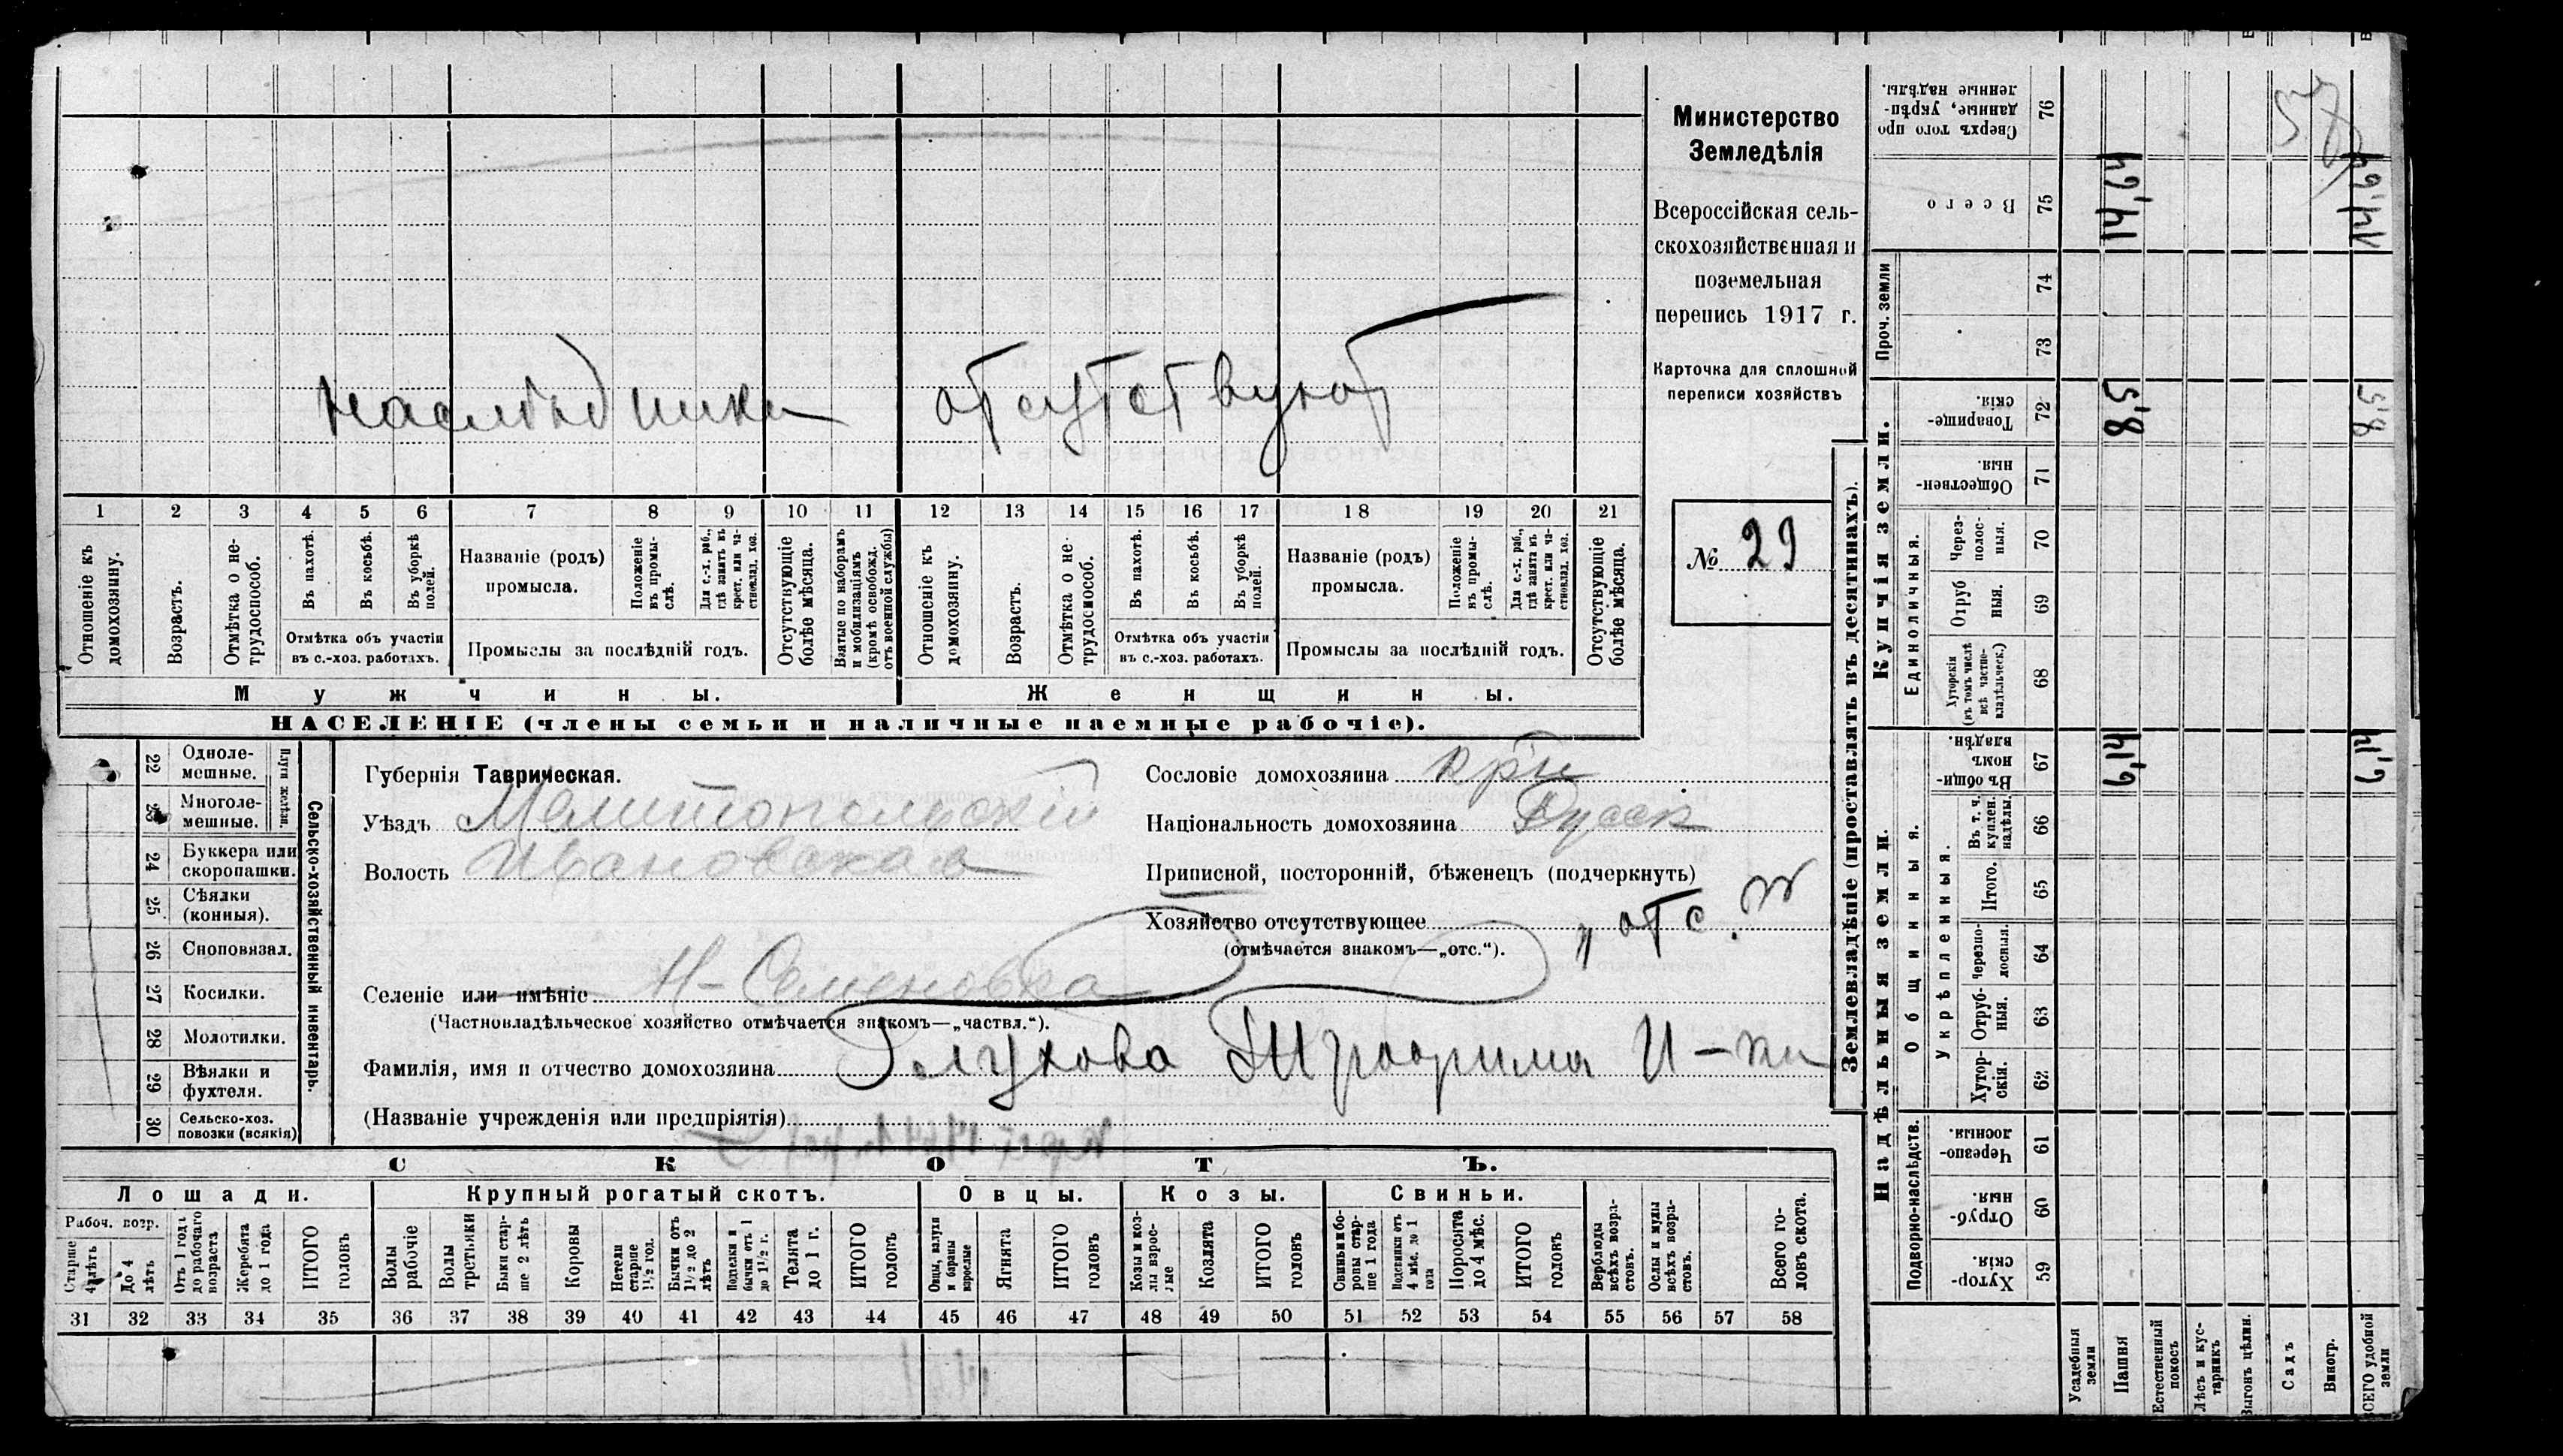 наслѣдники отсутствуют
1 2 3 4 5 6 7 8 9 10 11 12 13 14 15 16 17 18 19 20 21
Отношеніе къ домохозяину.
Возрастъ.
Отмѣтка о не-
трудоспособ.
Въ пахотѣ.
Въ косьбѣ.
Въ уборкѣ полей.
Отмѣтка объ участіи
въ с.-хоз. работахъ.
Названіе (родъ)
промысла.
Положеніе въ промы-
слѣ.
Для с.-х. раб.,
гдѣ занятъ въ
крест. или ча-
стновлад. хоз.
Промыслы за послѣдній годъ.
Отсутствующіе
болѣе мѣсяца.
Взятые по наборамъ
и мобилизаціямъ
(кромѣ освобожд.
отъ военной службы)
Отношеніе къ
домохозяину.
Возрастъ.
Отмѣтка о не-
трудоспособ.
Въ пахотѣ.
Въ косьбѣ.
Въ уборкѣ
полей.
Отмѣтка объ участіи
въ с.-хоз. работахъ.
Названіе (родъ)
промысла.
Положеніе
въ промы-
слѣ.
Для с.-х. раб.,
гдѣ занята въ
крест. или ча-
стновлад. хоз.
Промыслы за послѣдній годъ.
Отсутствующіе
болѣе мѣсяца.
Мужчины.
Женщины.
НАСЕЛЕНІЕ (члены семьи и наличные наемные рабочіе).
Министерство
Земледѣлія
Всероссійская сель-
скохозяйственная и
поземельная
перепись 1917 г.
Карточка для сплошной
переписи хозяйствъ
№ 29
22 Одноле-
мешные.
23 Многоле-
мешные.
Плуги желѣзн.
24 Буккера или
скоропашки.
25 Сѣялки
(конныя).
26 Сноповязал.
27 Косилки.
28 Молотилки.
29 Вѣялки и
фухтеля.
30 Сельско-хоз.
повозки (всякія)
Сельско-хозяйственный инвентарь.
Губернія Таврическая.
Уѣздъ Мелитопольскій
Волость Ивановская
Селеніе или имѣніе Н-Семеновка
(Частновладѣльческое хозяйство отмѣчается знакомъ—„частвл.“).
Фамилія, имя и отчество домохозяина Глухова И-ки
(Названіе учрежденія или предпріятія)
Сословіе домохозяина кр-н
Національность домохозяина Русск
Приписной, посторонній, бѣженецъ (подчеркнуть)
Хозяйство отсутствующее „отс.“
(отмѣчается знакомъ—„отс.“).
СКОТЪ.
Лошади. Крупный рогатый скотъ. Овцы. Козы. Свиньи.
Рабоч. возр.
Старше
4 лѣтъ
До 4
лѣтъ
Отъ 1 года
до рабочаго
возраста
Жеребята
до 1 года
ИТОГО
головъ
Волы
рабочіе
Волы
третьяки
Быки стар-
ше 2 лѣтъ
Коровы
Нетели
старше
1½ год.
Бычки отъ
1½ до 2
лѣтъ
Подтелки и
бычки отъ 1
до 1½ г.
Телята
до 1 г.
ИТОГО
головъ
Овцы, валухи
и бараны
взрослые
Ягнята
ИТОГО
головъ
Козы и коз-
лы взрос-
лые
Козлята
ИТОГО
головъ
Свиньи и бо-
ровы стар-
ше 1 года
Подсвинки отъ
4 мѣс. до 1
года
Поросята
до 4 мѣс.
ИТОГО
головъ
Верблюды
всѣхъ возра-
стовъ.
Ослы и мулы
всѣхъ возра-
стовъ.
Всего го-
ловъ скота.
31 32 33 34 35 36 37 38 39 40 41 42 43 44 45 46 47 48 49 50 51 52 53 54 55 56 57 58
Землевладѣніе (проставлять въ десятинахъ).
Надѣльныя земли.
Купчія земли.
Проч. земли
Подворно-наслѣдств.
Общинныя.
Укрѣпленныя.
Единоличныя.
Хутор-
скія. 59
Отруб-
ныя. 60
Черезпо-
лосныя. 61
Хутор-
скія. 62
Отруб-
ныя. 63
Черезпо-
лосныя. 64
Итого. 65
Въ т. ч.
куплен.
надѣлы. 66
Въ общин-
номъ
владѣн. 67
Хуторскія
(въ томъ числѣ
всѣ частно-
владѣльческ.) 68
Отруб
ныя. 69
Через-
полос-
ныя. 70
Обществен-
ныя. 71
Товарище-
скія. 72
73
74
Всего 75
Сверхъ того про
данные, укрѣп-
ленные надѣлы. 76
Усадебныя
земли
Пашня
Естественный
покосъ
Лѣсъ и кус-
тарникъ
Выгонъ цѣлин.
Садъ
Виногр.
ВСЕГО удобной
земли
6,14 8,5 14,64
6,14 8,5 14,64
57